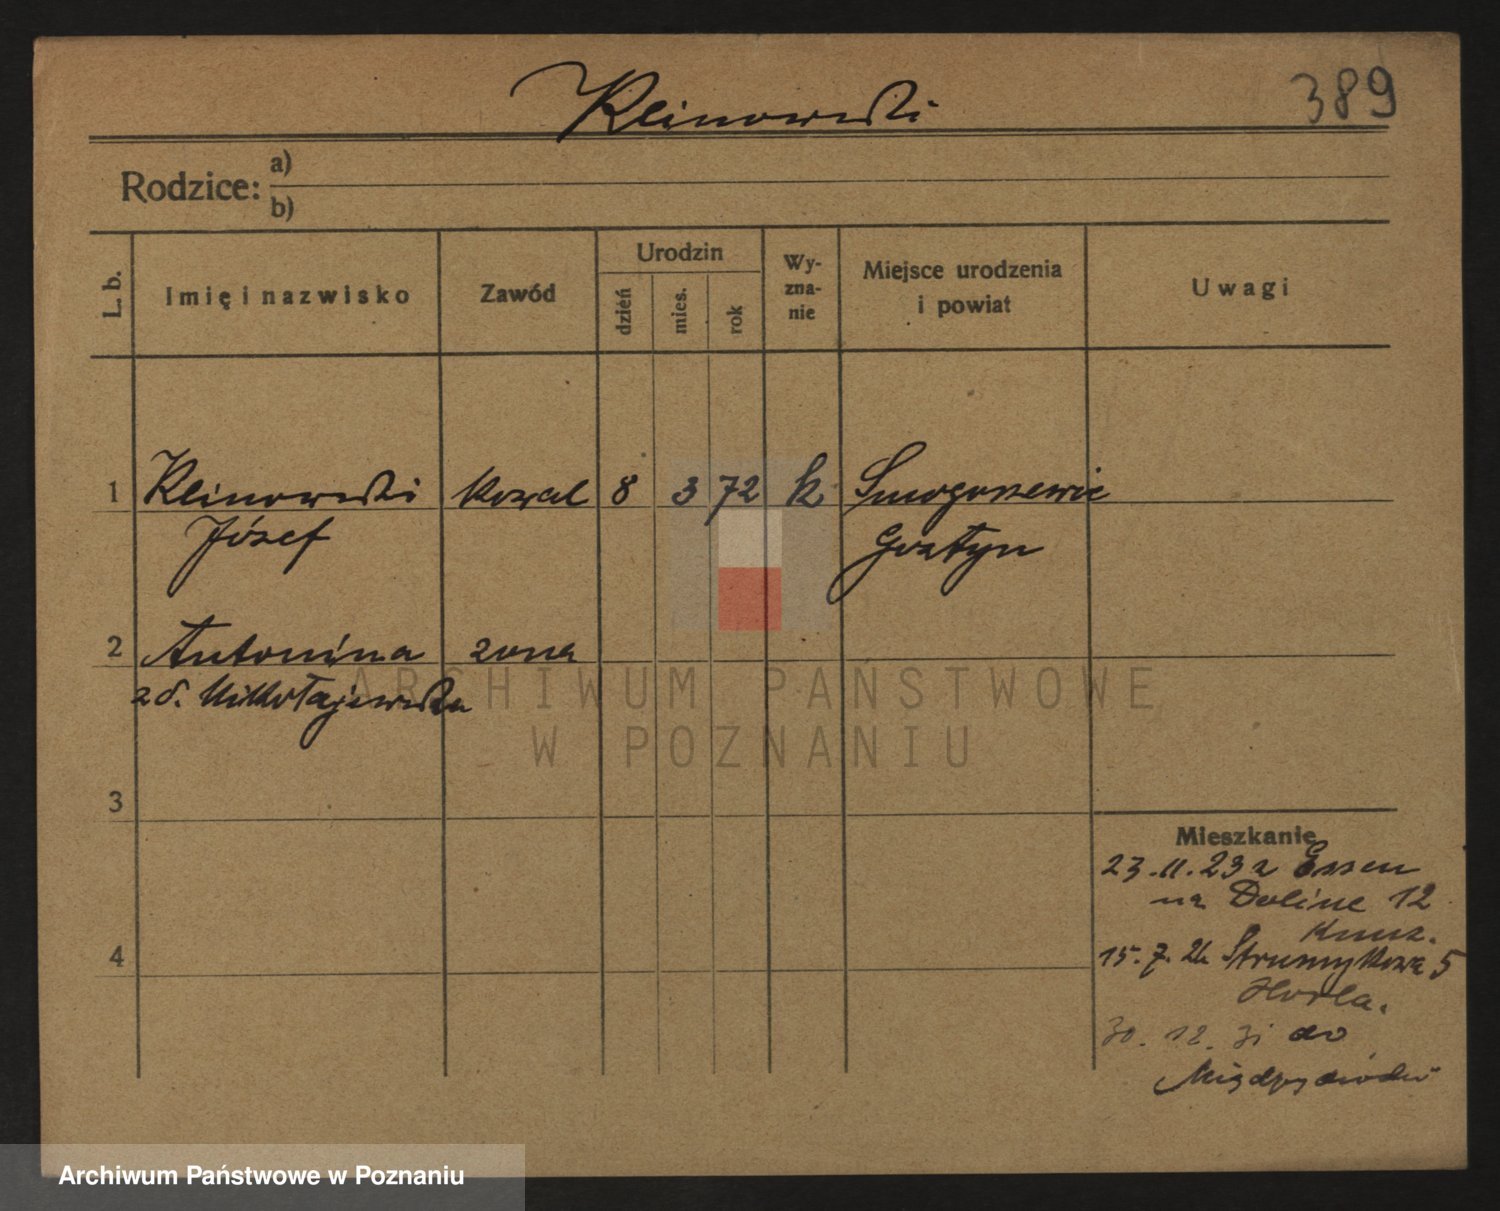 Klinowski
389
Rodzice: a)
b)
L. b.
Imię i nazwisko
Zawód
Urodzin
dzień
mies.
rok
Wy-
zna-
nie
Miejsce urodzenia
i powiat
Uwagi
1 Klinowski kowal 8 3 72 k Smogorzewie
Józef Gostyn
2 Antonina żona
z d. Mikołajewska
3
4
Mieszkanie
23.11.23 z Essen
na Doline 12
15.7.26 Strumykowa 5
30.12.31 do
Międzychodu
ARCHIWUM PAŃSTWOWE
W POZNANIU
Archiwum Państwowe w Poznaniu